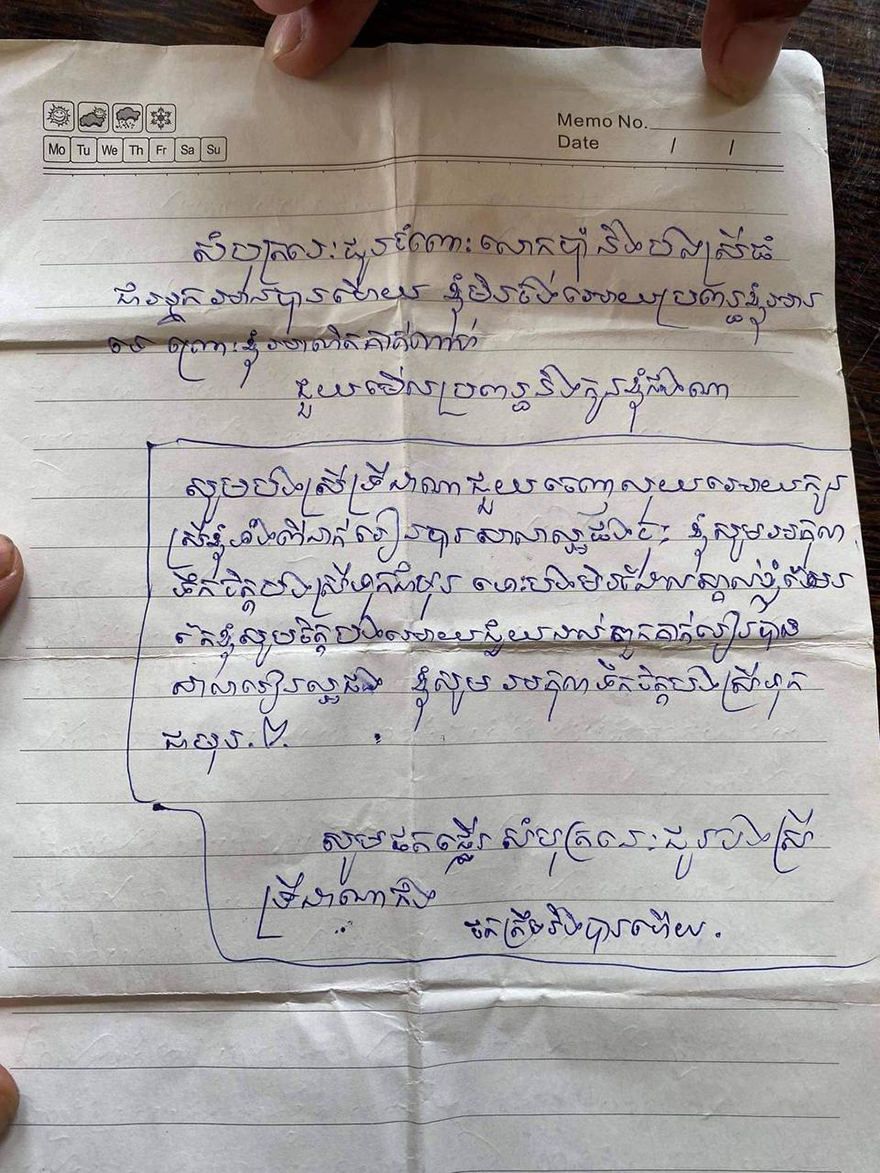 Memo No.
Date / /
Mo Tu We Th Fr Sa Su
សំបុត្រនេះជូនចំពោះលោកប៉ា និងបងស្រីធំ
បានហើយ ខ្ញុំមិនចង់អោយប្រពន្ធខ្ញុំ
ទេ ព្រោះខ្ញុំ គាត់ណាស់
ជួយមើលប្រពន្ធនិងកូនខ្ញុំផងណា
សូមបងស្រីទ្រីដាណាជួយចេញលុយអោយកូន
ស្រីខ្ញុំទាំងពីរនាក់រៀនបានសាលាល្អផងចុះ ខ្ញុំសូមអរគុណ
ទឹកចិត្តបងស្រីទុកជាមុន ទោះបងមិនដែលស្គាល់ខ្ញុំមែន
តែខ្ញុំសូមចិត្តបងអោយជួយដល់ពួកគាត់រៀនបាន
សាលារៀនល្អផង ខ្ញុំសូម អរគុណទឹកចិត្តបងស្រីទុក
ជាមុន.២.
សូមផតផ្ញើរ សំបុត្រនេះជូនបងស្រី
ទ្រីដាណាផង
ផតត្រឹមនឹងបានហើយ.